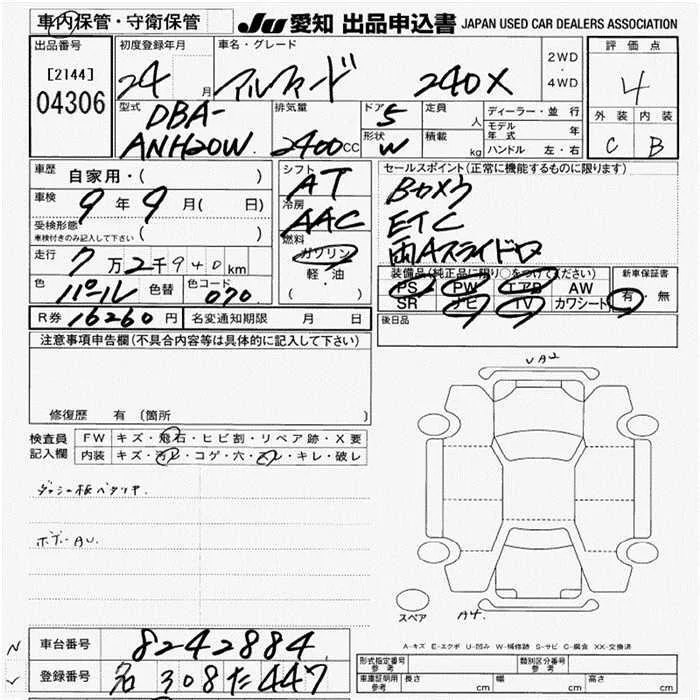 車内保管・守衛保管 JU 愛知 出品申込書 JAPAN USED CAR DEALERS ASSOCIATION
出品番号 初度登録年月 車名・グレード 評価点
[2144] 24 月 アルファード 240X 2WD・4WD 4
04306 型式 排気量 ドア 5 定員 人 ディーラー・並行 外装 内装
DBA- 形状 W 積載 kg モデル年式 年 C B
ANH20W 2400cc ハンドル 左・右
車歴 自家用・( ) シフト セールスポイント(正常に機能するものに限ります)
AT Bカメラ
車検 9年9月( 日) 冷房 ETC
受検形態 AAC 両Aスライドドア
車検付きのみ記入して下さい ( ) 燃料
走行 7万2千940km ガソリン 装備品(純正品に限り○をつけてください) 新車保証書
色 パール 色替 色コード 070 軽・油 PS PW エアB AW 有・無
( ) SR ナビ TV カワシート
R券 16260円 名変通知期限 月 日 後日品
注意事項申告欄(不具合内容等は具体的に記入して下さい)
修復歴 有 (箇所
検査員 FW キズ・飛石・ヒビ割・リペア跡・X要
記入欄 内装 キズ・汚レ・コゲ・穴・スレ・キレ・破レ
ダッシュ板ベタツキ.
ボデーAU.
UA2
A4.
スペア
A-キズ E-エクボ U-凹み W-補修跡 S-サビ C-腐食 XX-交換済
車台番号 8242884
登録番号 名308た447
形式指定番号 参考 類別区分番号 参考
車庫証明用 参考 長さ cm 幅 cm 高さ cm